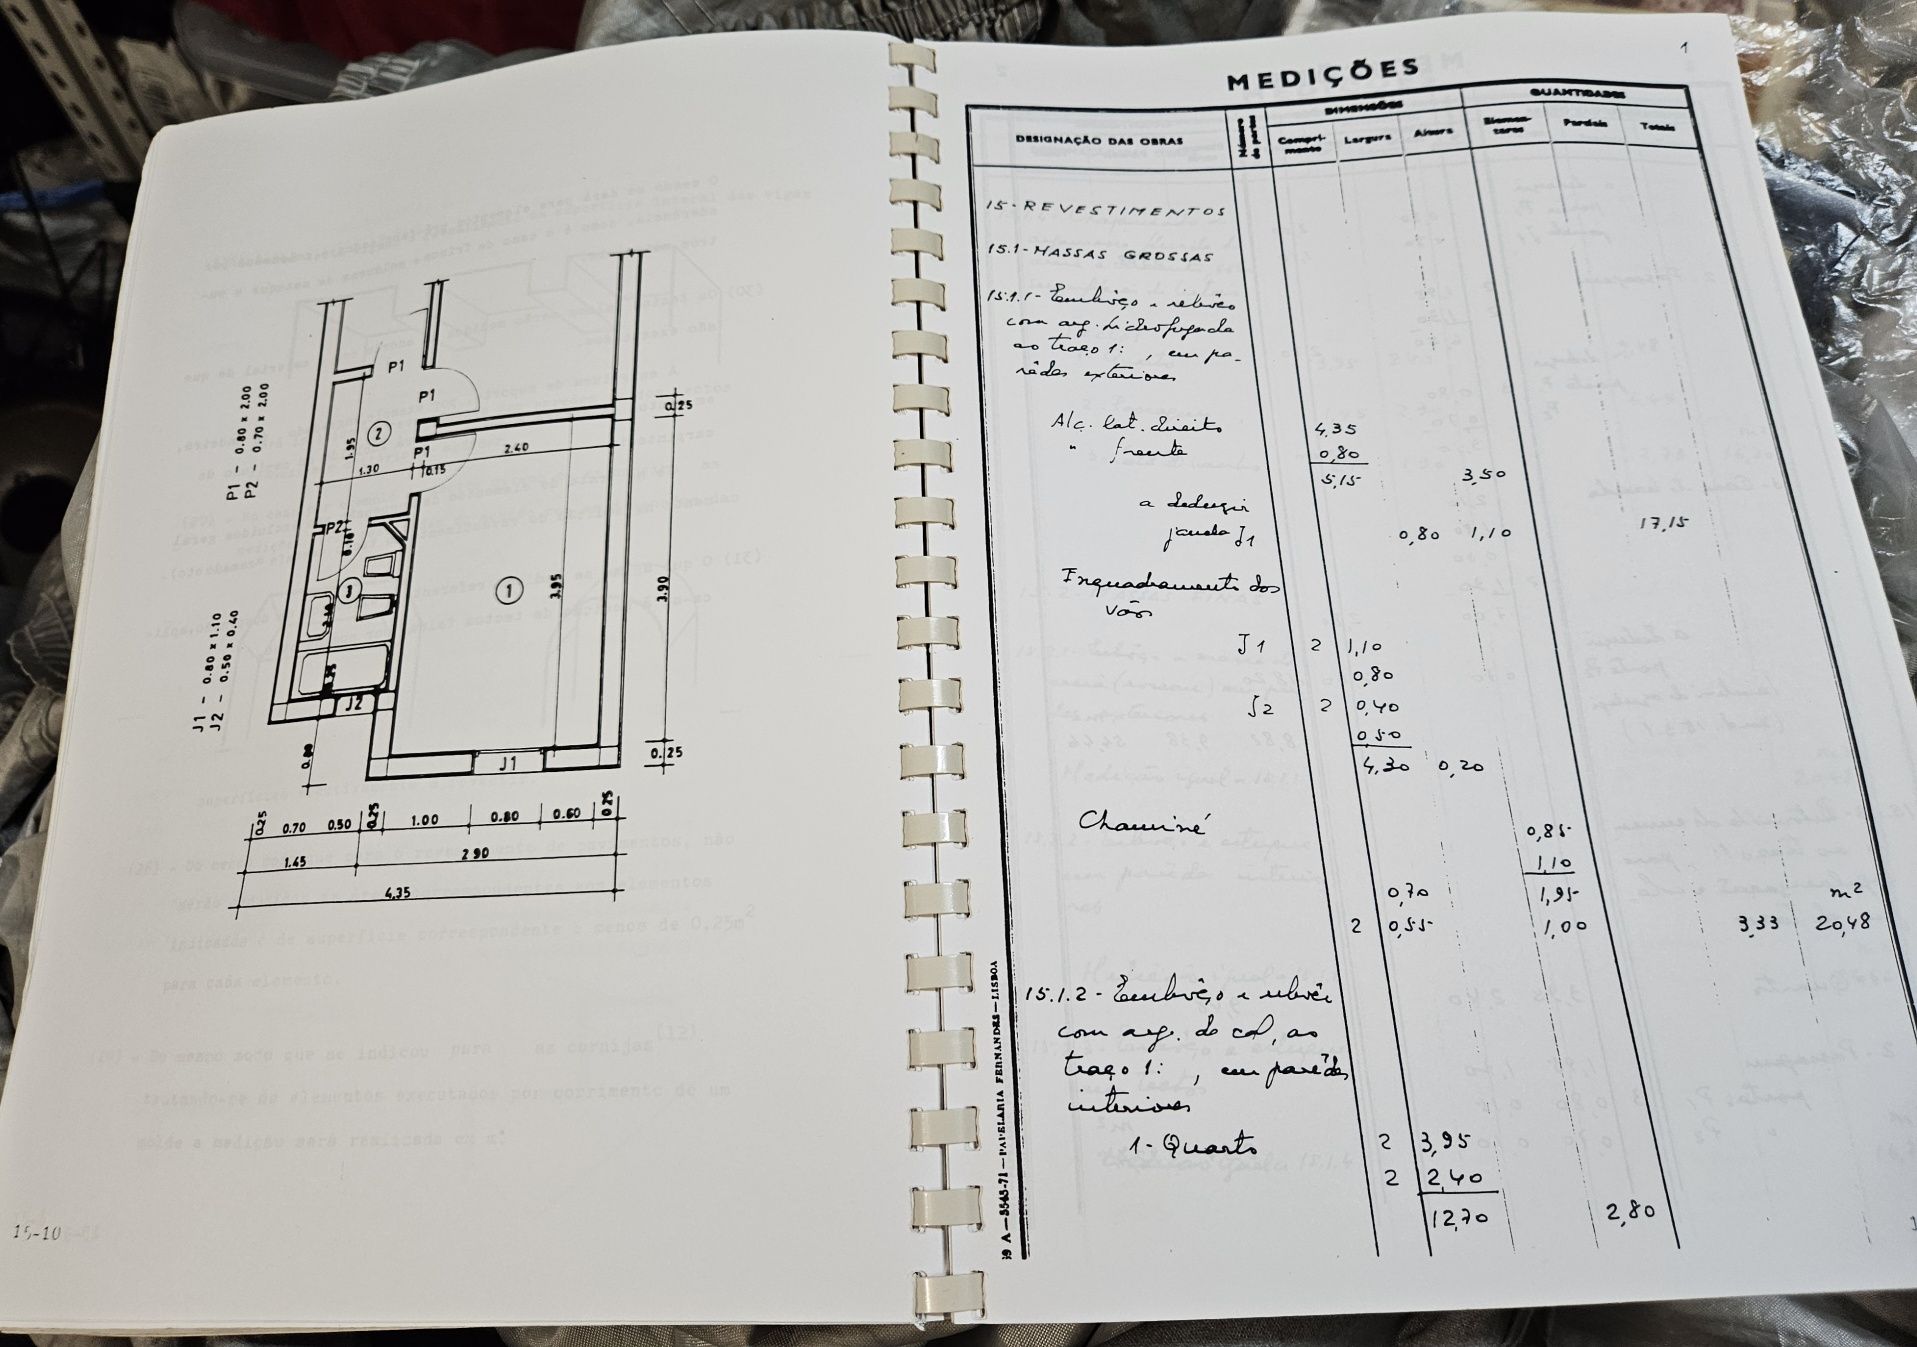 P1
P1
P1
P1 - 0.80 x 2.00
P2 - 0.70 x 2.00
0.25
2
1.95
1.30
0.15
2.40
P2
0.10
3
1
3.95
3.90
J1 - 0.80 x 1.10
J2 - 0.50 x 0.40
J2
0.80
J1
0.25
0.25 0.70 0.50 0.25 1.00 0.80 0.60 0.25
1.45 2.90
4.35
15-10
1
MEDIÇÕES
DESIGNAÇÃO DAS OBRAS
Número de partes
DIMENSÕES
QUANTIDADES
Compri-
mento
Largura
Altura
Elemen-
tares
Parciais
Totais
15-REVESTIMENTOS
15.1-MASSAS GROSSAS
15.1.1- Embôço e rebôco
com arg. hidrofugada
ao traço 1: , em pa-
rêdes exteriores
Alç. lat. direito 4,35
" frente 0,80
5,15 3,50
a deduzir
janela J1 0,80 1,10 17,15
Enquadramento dos
Vãos
J1 2 1,10
0,80
J2 2 0,40
0,50
4,30 0,20
Chaminé 0,85
1,10
0,70 1,95 m²
2 0,55 1,00 3,33 20,48
15.1.2- Embôço e rebôco
com arg. de cal, ao
traço 1: , em parêdes
interiores
1-Quarto 2 3,95
2 2,40
12,70 2,80
A—5545-71—PAPELARIA FERNANDES—LISBOA